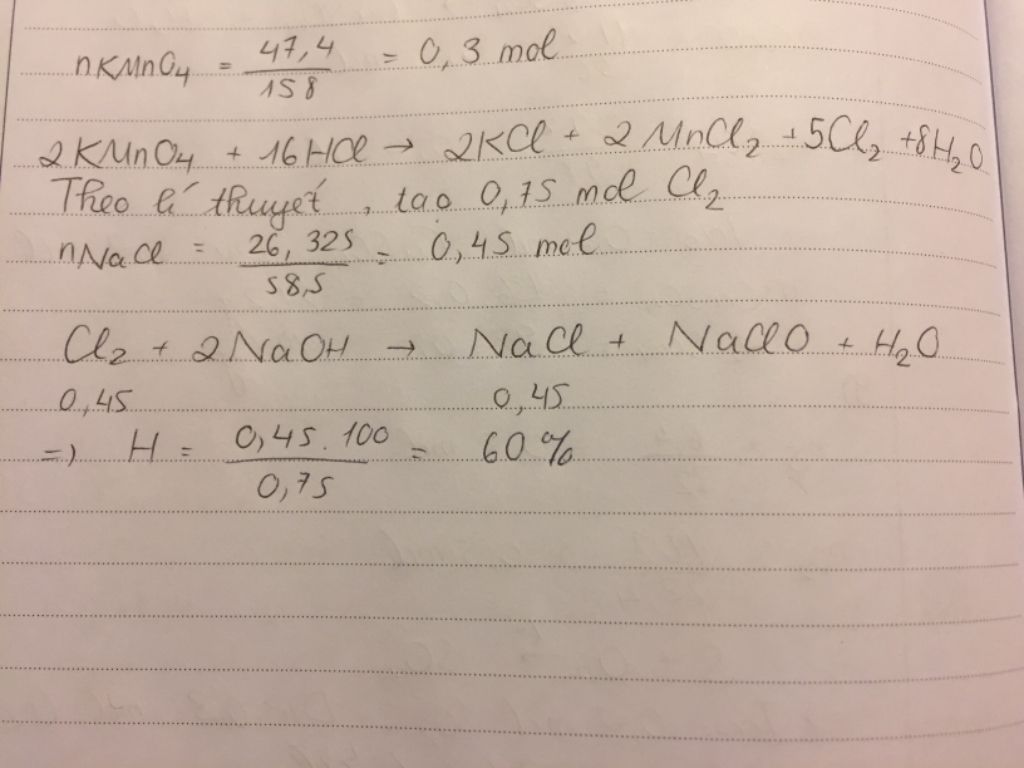 nKMnO₄ = 47,4 / 158 = 0,3 mol
2KMnO₄ + 16HCl → 2KCl + 2MnCl₂ + 5Cl₂ + 8H₂O
Theo lí thuyết, tạo 0,75 mol Cl₂
nNaCl = 26,325 / 58,5 = 0,45 mol
Cl₂ + 2NaOH → NaCl + NaClO + H₂O
0,45 0,45
=) H = 0,45.100 / 0,75 = 60%